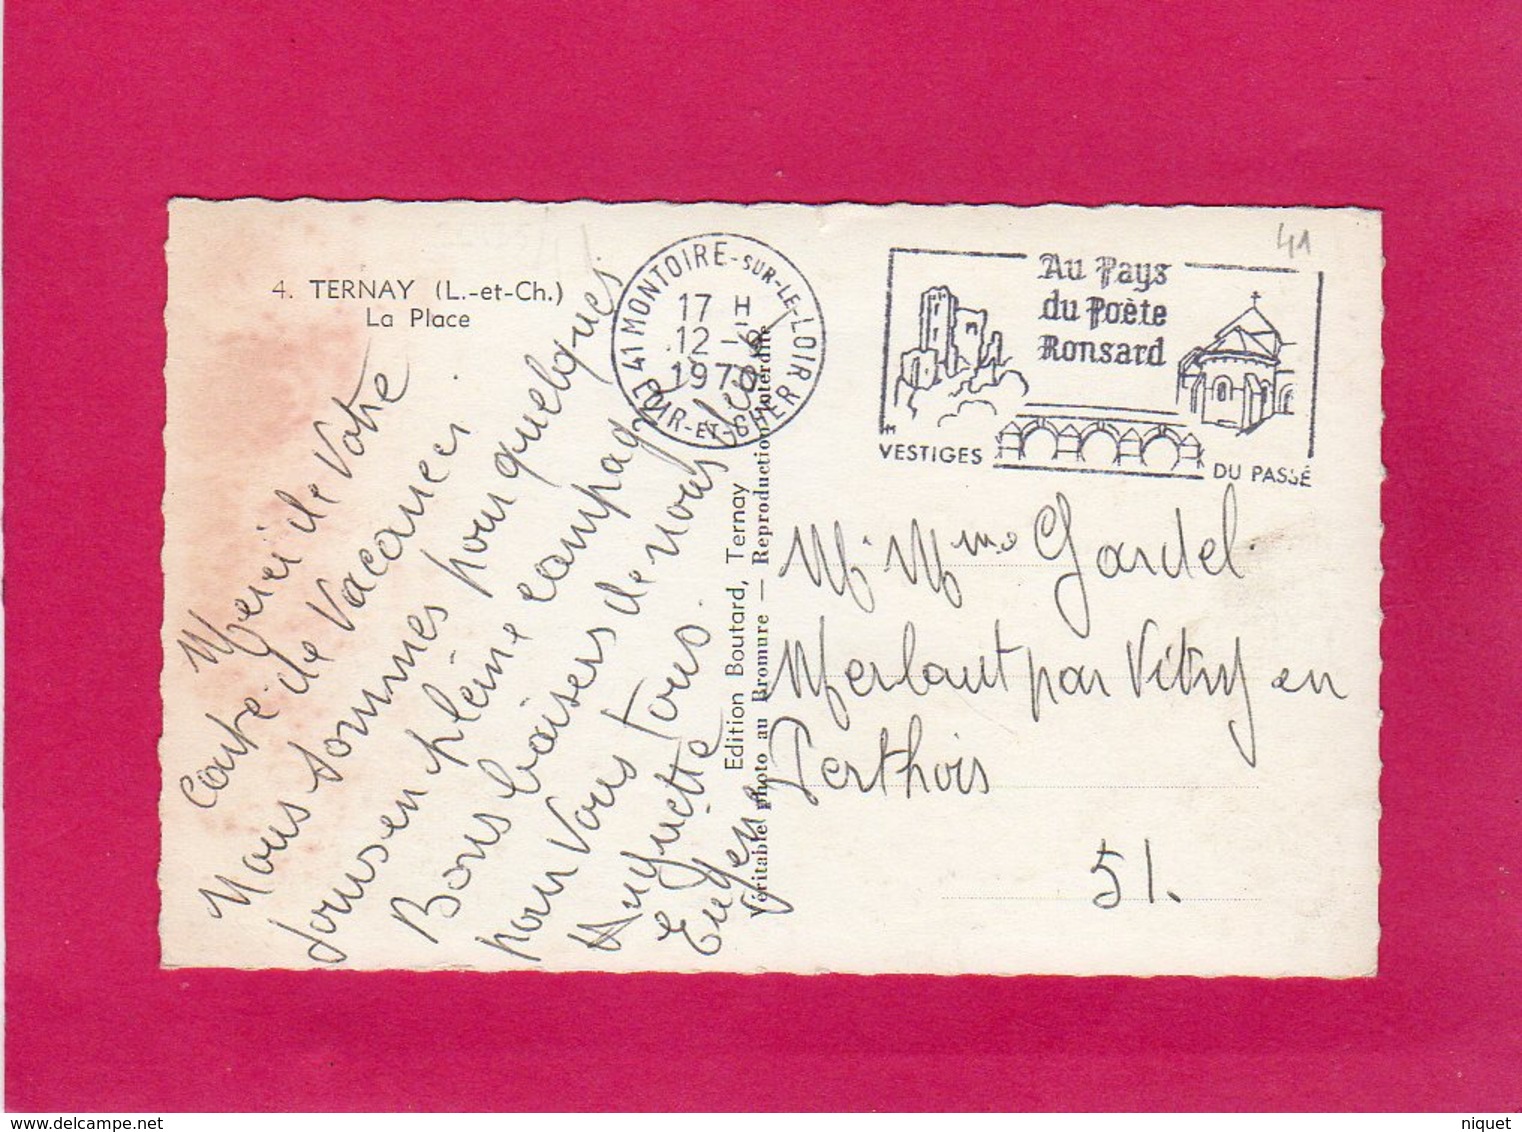 4. TERNAY (L.-et-Ch.)
La Place
Merci de Votre
Carte de Vacances.
Nous sommes pour quelques
jours en pleine campagne
Bons baisers de nous deux
pour Vous Tous.
Huguette
Eugène
41 MONTOIRE-SUR-LE-LOIR
LOIR-ET-CHER
17 H
12-6
1970
Au Pays
du Poète
Ronsard
VESTIGES
DU PASSÉ
41
Edition Boutard, Ternay
Véritable photo au Bromure — Reproduction interdite
M. Mme Gardel
Merlaut par Vitry en
Perthois
51.
niquet